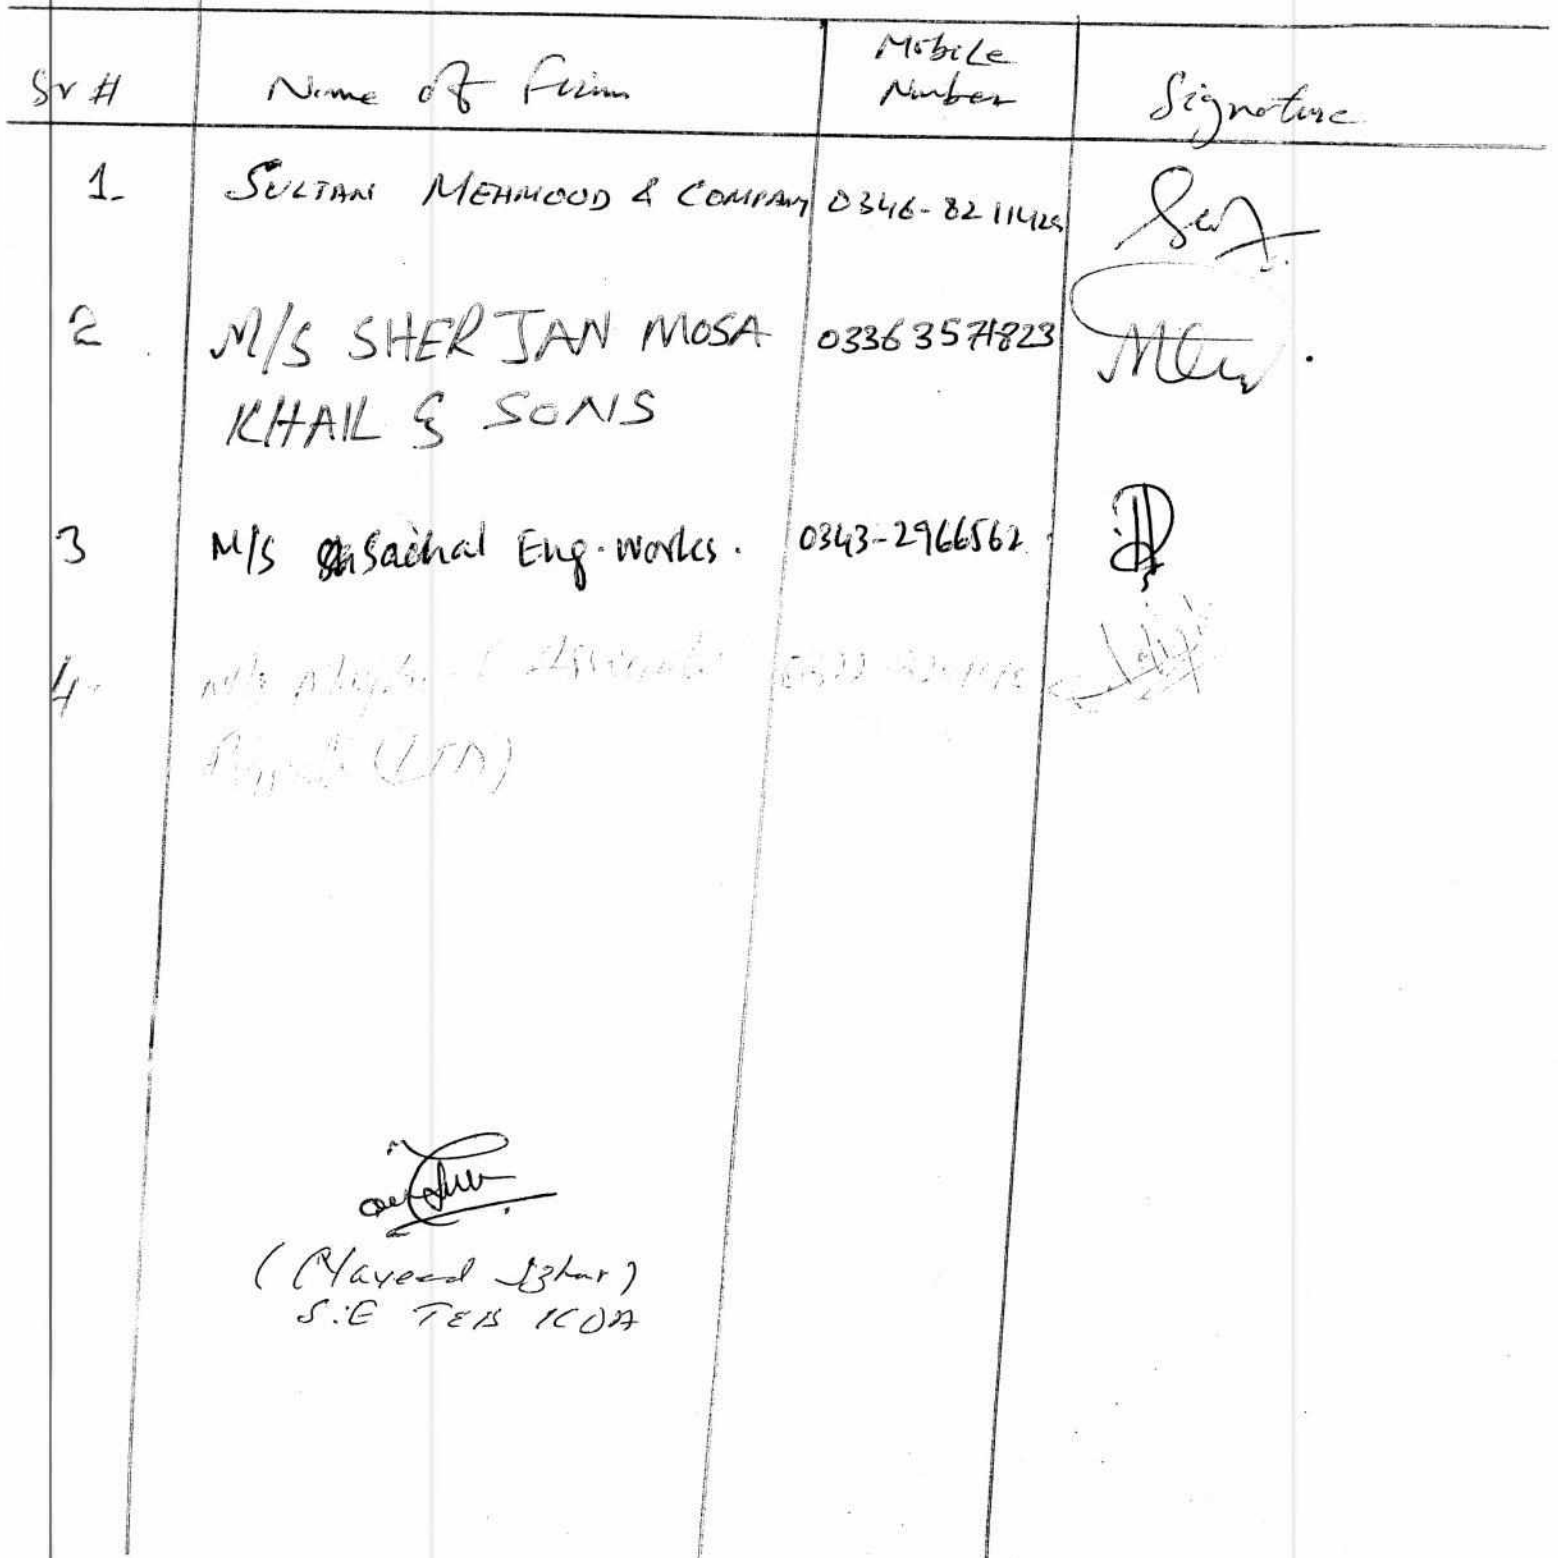 Sr # Name of Firm Mobile Number Signature
1- SULTAN MEHMOOD & COMPANY 0346-8211429
2 M/S SHER JAN MOSA 03363571823
KHAIL & SONS
3 M/S Sachal Eng. works. 0343-2966562
4- M/s
(LTD)
(Naveed Izhar)
S.E T&B KDA